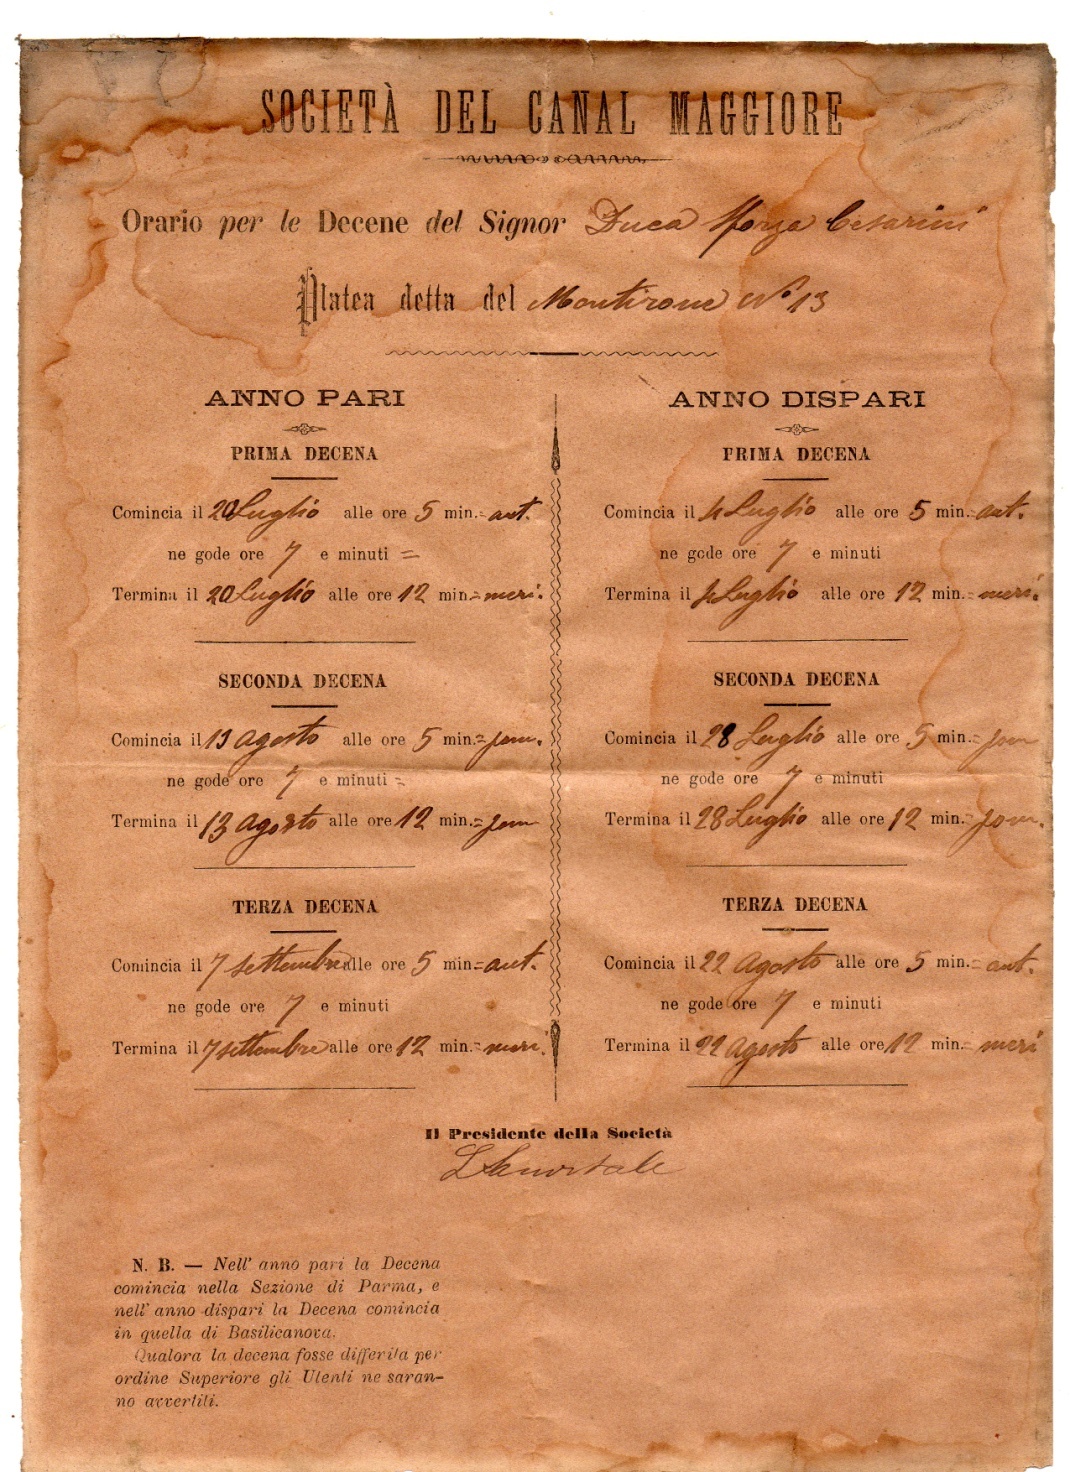 SOCIETÀ DEL CANAL MAGGIORE
Orario per le Decene del Signor Duca Sforza Cesarini
Platea detta del Montirone No 13
ANNO PARI
PRIMA DECENA
Comincia il 20 Luglio alle ore 5 min.= ant.
ne gode ore 7 e minuti =
Termina il 20 Luglio alle ore 12 min.= meri.
SECONDA DECENA
Comincia il 13 agosto alle ore 5 min.= pom.
ne gode ore 7 e minuti =
Termina il 13 agosto alle ore 12 min.= pom
TERZA DECENA
Comincia il 7 settembre alle ore 5 min.= ant.
ne gode ore 7 e minuti
Termina il 7 settembre alle ore 12 min.= meri.
ANNO DISPARI
PRIMA DECENA
Comincia il 4 Luglio alle ore 5 min.= ant.
ne gode ore 7 e minuti
Termina il 4 Luglio alle ore 12 min.= meri.
SECONDA DECENA
Comincia il 28 Luglio alle ore 5 min.= pom
ne gode ore 7 e minuti
Termina il 28 Luglio alle ore 12 min.= pom.
TERZA DECENA
Comincia il 22 Agosto alle ore 5 min.= ant.
ne gode ore 7 e minuti
Termina il 22 Agosto alle ore 12 min.= meri
Il Presidente della Società
N. B. — Nell' anno pari la Decena
comincia nella Sezione di Parma, e
nell' anno dispari la Decena comincia
in quella di Basilicanova.
Qualora la decena fosse differita per
ordine Superiore gli Utenti ne saran-
no avvertiti.